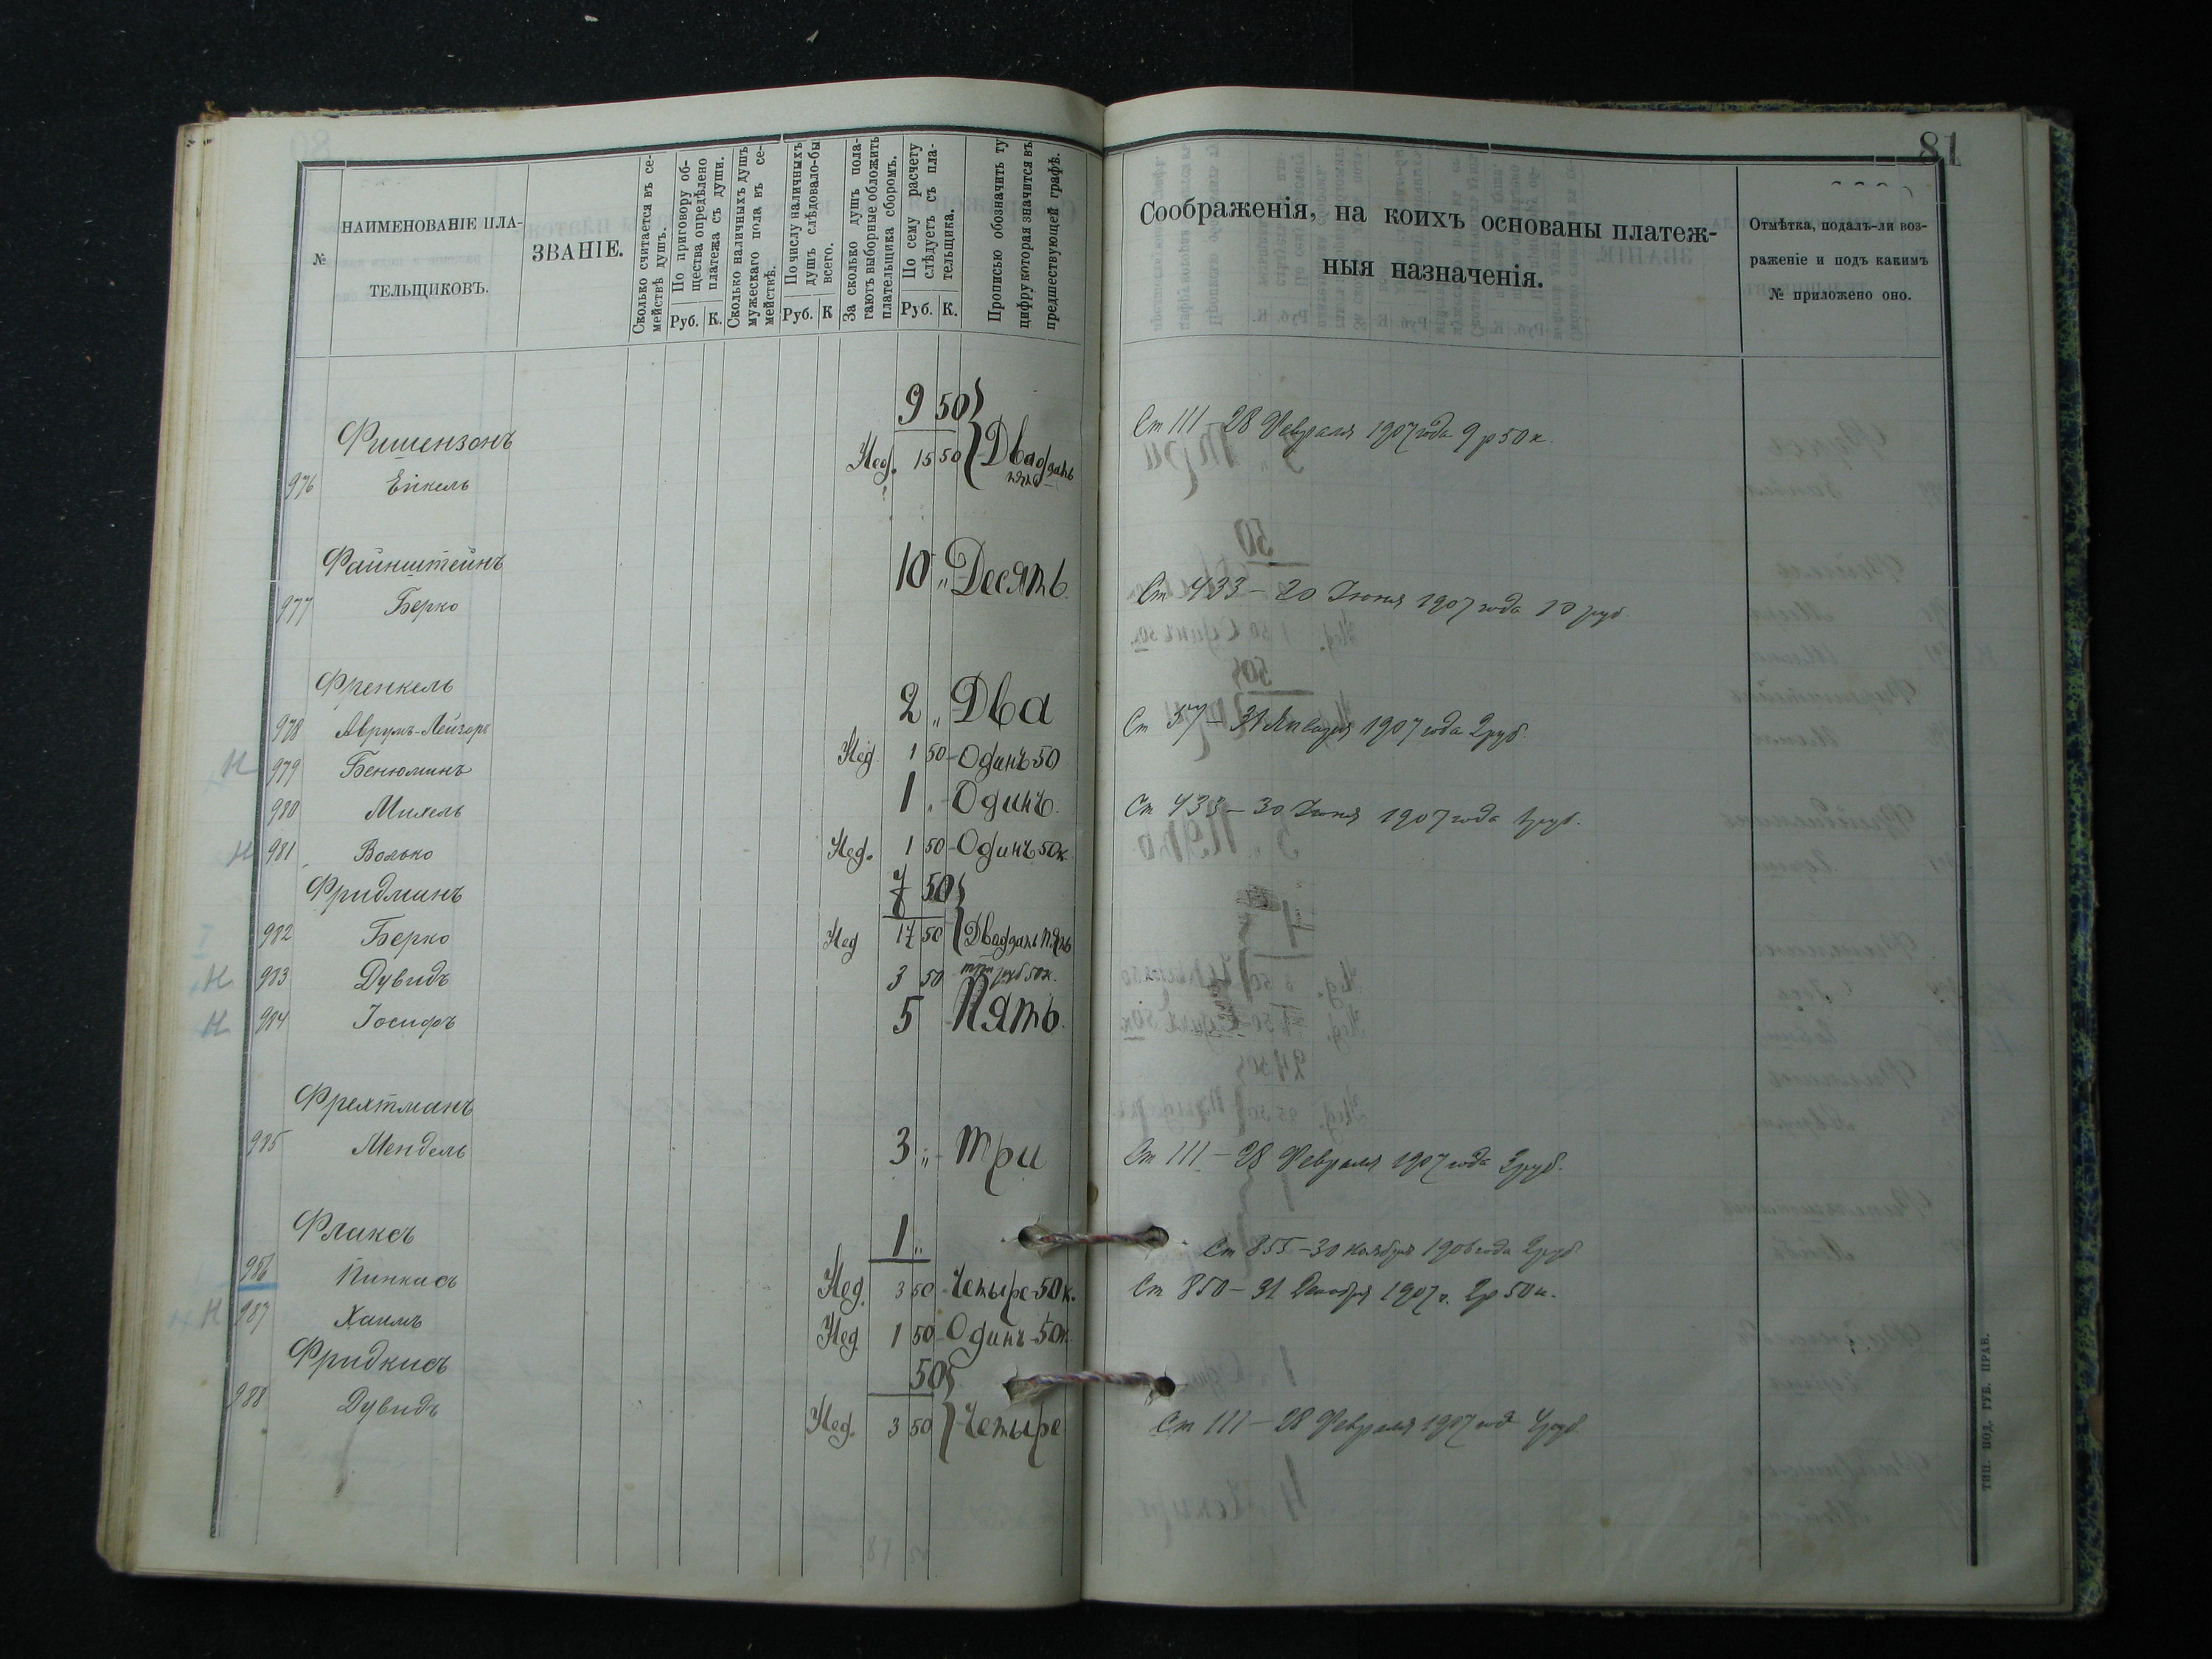 81
№
НАИМЕНОВАНІЕ ПЛА-
ТЕЛЬЩИКОВЪ.
ЗВАНІЕ.
Сколько считается въ се-
мействѣ душъ.
По приговору об-
щества опредѣлено
платежа съ души.
Руб. К.
Сколько наличныхъ душъ
мужескаго пола въ се-
мействѣ.
По числу наличныхъ
душъ слѣдовало-бы
всего.
Руб. К
За сколько душъ пола-
гаютъ выборные обложить
плательщика сборомъ.
По сему расчету
слѣдуетъ съ пла-
тельщика.
Руб. К.
Прописью обозначить ту
цифру которая значится въ
предшествующей графѣ.
Соображенія, на коихъ основаны платеж-
ныя назначенія.
Отмѣтка, подалъ-ли воз-
раженіе и подъ какимъ
№ приложено оно.
9 50
Фишензонъ
Ст 111 – 28 Февраля 1907 года 9 р 50 к.
Нед. 15 50 Двадцать
пять
976 Ейкель
Файнштейнъ 10 „ Десять.
977 Берко Ст 433 – 20 Іюня 1907 года 10 руб.
Френкель
2 „ Два
978 Аврумъ-Лейзоръ Ст 57 – 31 Января 1907 года 2 руб.
Н 979 Бенюминъ Нед. 1 50 - Одинъ 50
980 Михель 1 „ - Одинъ. Ст 433 – 30 Іюня 1907 года 1 руб.
Н 981 Волько Нед. 1 50 - Одинъ 50 к.
Фридманъ 7 50
982 Берко Нед 17 50 Двадцать пять
Н 983 Дувидъ 3 50 три руб 50 к.
Н 984 Іосифъ 5 Пять.
Фрехтманъ
985 Мендель 3 „ - Три Ст 111 – 28 Февраля 1907 года 3 руб.
Флаксъ 1 „
Ст 855 – 30 Ноября 1906 года 2 руб
986 Пинкасъ Нед. 3 50 - Четыре 50 к. Ст 850 – 31 Декабря 1907 г. 2 р 50 к.
Н 987 Хаимъ Нед. 1 50 - Одинъ - 50 к.
Фридкисъ 50
988 Дувидъ Нед. 3 50 - Четыре Ст 111 – 28 Февраля 1907 год 4 руб.
ТИП. ПОД. ГУБ. ПРАВ.